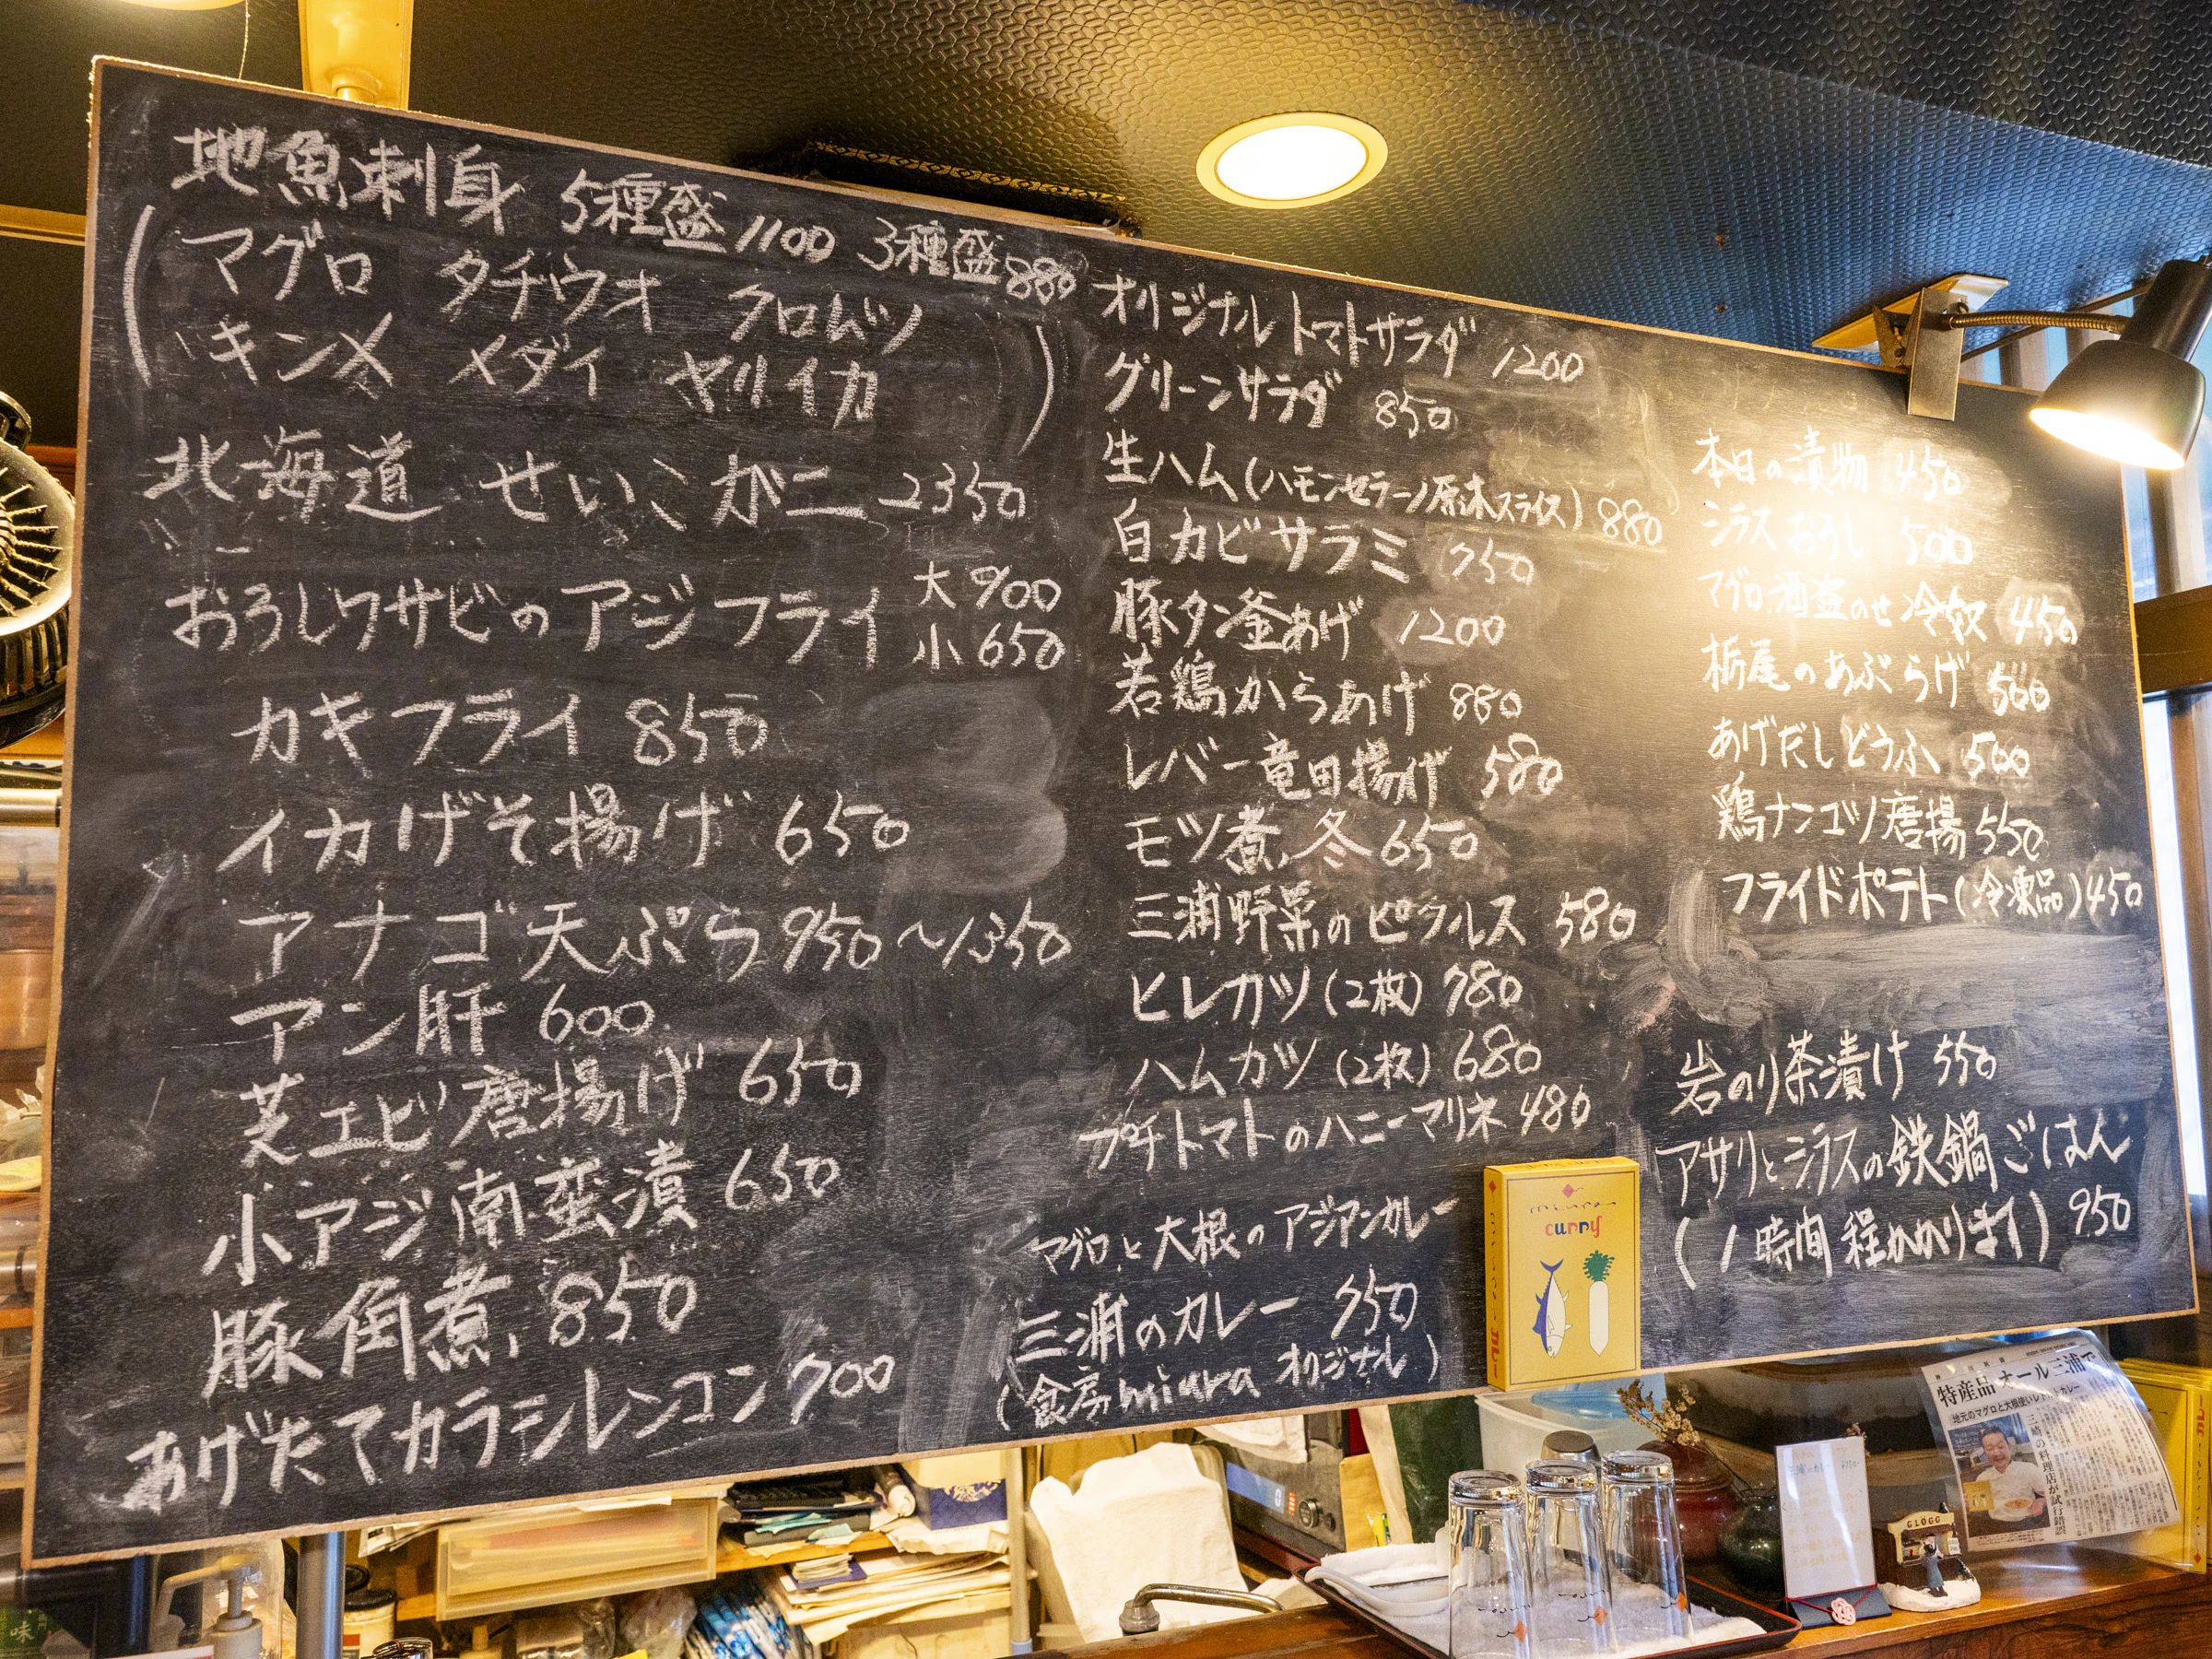 地魚刺身 5種盛 1100 3種盛 880
(マグロ タチウオ クロムツ
キンメ メダイ ヤリイカ)
北海道 せいこガニ 2350
おろしワサビの アジフライ 大 900
小 650
カキフライ 850
イカげそ揚げ 650
アナゴ天ぷら 950～1350
アン肝 600
芝エビ唐揚げ 650
小アジ南蛮漬 650
豚角煮 850
あげたてカラシレンコン 700
オリジナル トマトサラダ 1200
グリーンサラダ 850
生ハム(ハモンセラーノ原木スライス) 880
白カビサラミ 750
豚タン釜あげ 1200
若鶏からあげ 880
レバー竜田揚げ 580
モツ煮 冬 650
三浦野菜のピクルス 580
ヒレカツ(2枚) 780
ハムカツ(2枚) 680
プチトマトのハニーマリネ 480
マグロと大根のアジアンカレー
三浦のカレー 750
(食房miura オリジナル)
本日の漬物 450
シラスおろし 500
マグロ酒盗のせ冷奴 450
栃尾のあぶらげ 500
あげだしどうふ 500
鶏ナンコツ唐揚 550
フライドポテト(冷凍品) 450
岩のり茶漬け 550
アサリとシラスの鉄鍋ごはん
(1時間程かかります) 950
miura
curry
特産品オール三浦で
地元のマグロと大根使いレトルトカレー
三崎の料理店が試行錯誤
GLOGG